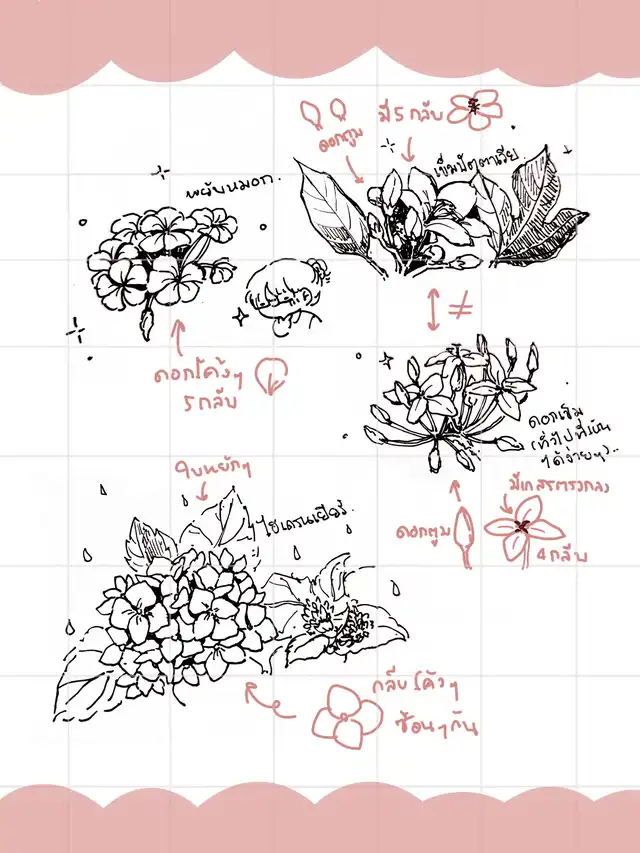 มี 5 กลีบ
ดอกตูม
เข็มปัตตาเวีย
พยับหมอก.
≠
ดอกโค้งๆ
5 กลีบ
ดอกเข็ม
(ทั่วไปที่เห็น
ได้ง่ายๆ)..
ใบหยักๆ
มีเกสรตรงกลาง
ไฮเดรนเยียร์.
ดอกตูม
4 กลีบ
กลีบโค้งๆ
ซ้อนๆกัน